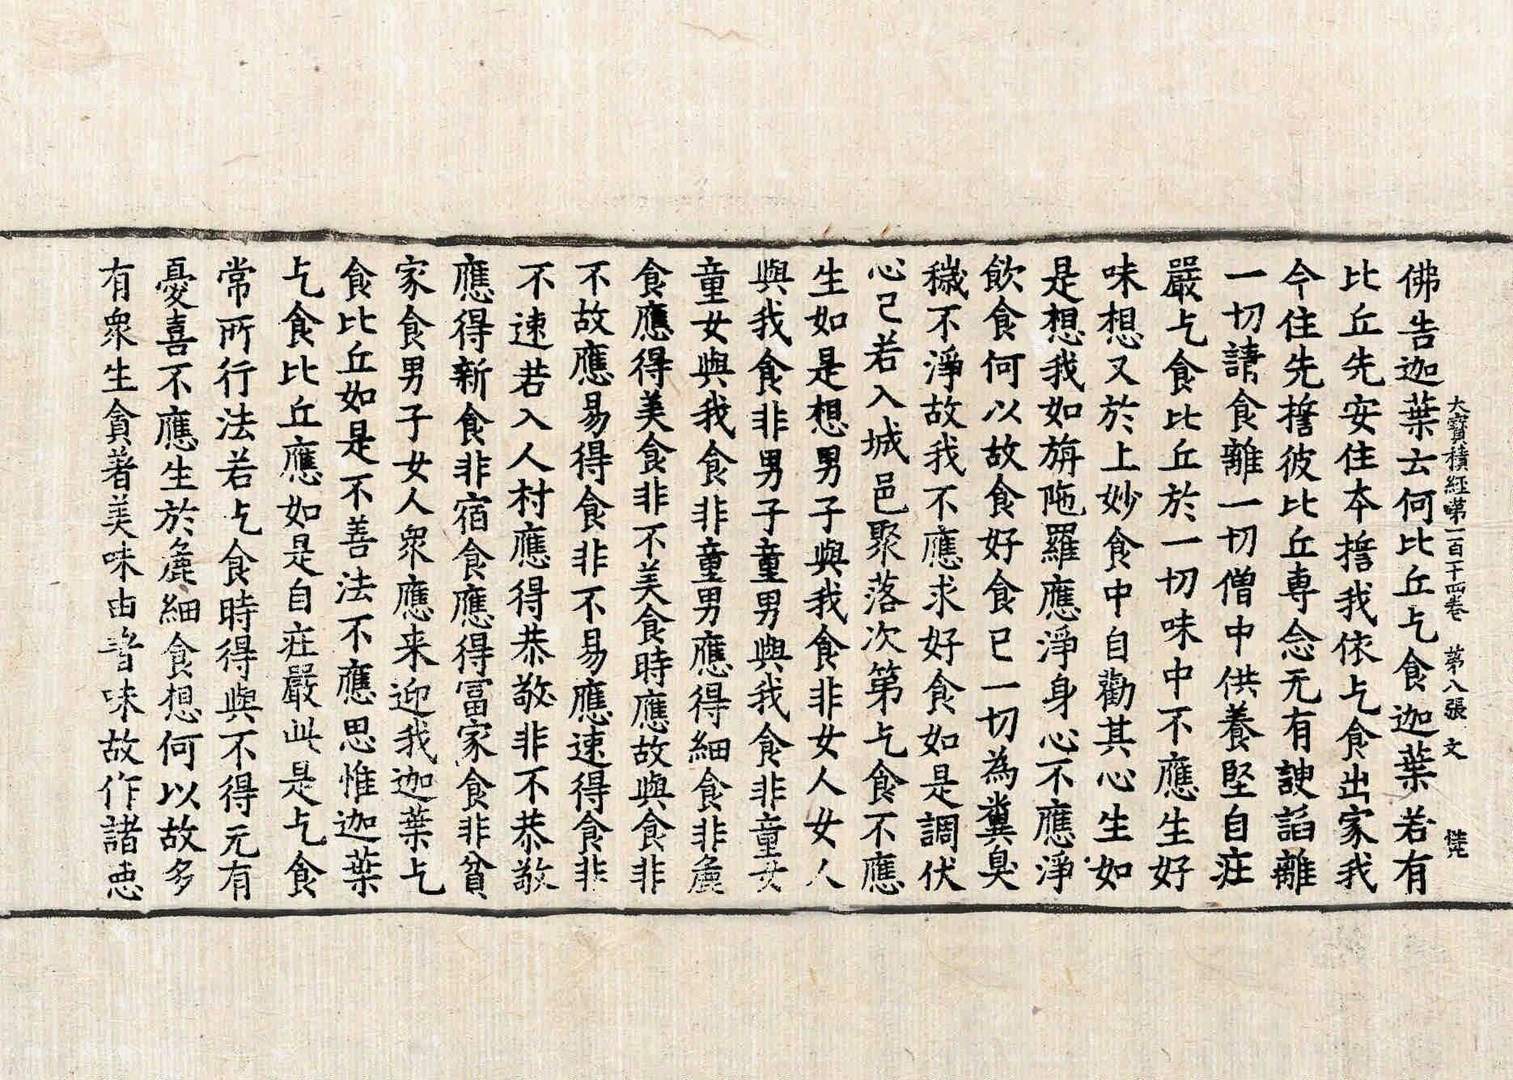 大寳積經苐一百十四卷 苐八張 文
佛告迦葉云何比丘乞食迦葉若有
比丘先安住本誓我依乞食出家我
今住先誓彼比丘専念无有諛諂離
一切請食離一切僧中供養堅自庄
嚴乞食比丘於一切味中不應生好
味想又於上妙食中自勸其心生如
是想我如旃陁羅應淨身心不應淨
飲食何以故食好食已一切為糞臭
穢不淨故我不應求好食如是調伏
心已若入城邑聚落次第乞食不應
生如是想男子與我食非女人女人
與我食非男子童男與我食非童女
童女與我食非童男應得細食非麁
食應得美食非不美食時應故與食非
不故應易得食非不易應速得食非
不速若入人村應得恭敬非不恭敬
應得新食非宿食應得冨家食非貧
家食男子女人衆應来迎我迦葉乞
食比丘如是不善法不應思惟迦葉
乞食比丘應如是自庄嚴此是乞食
常所行法若乞食時得與不得无有
憂喜不應生於麁細食想何以故多
有衆生貪著美味由著味故作諸悪